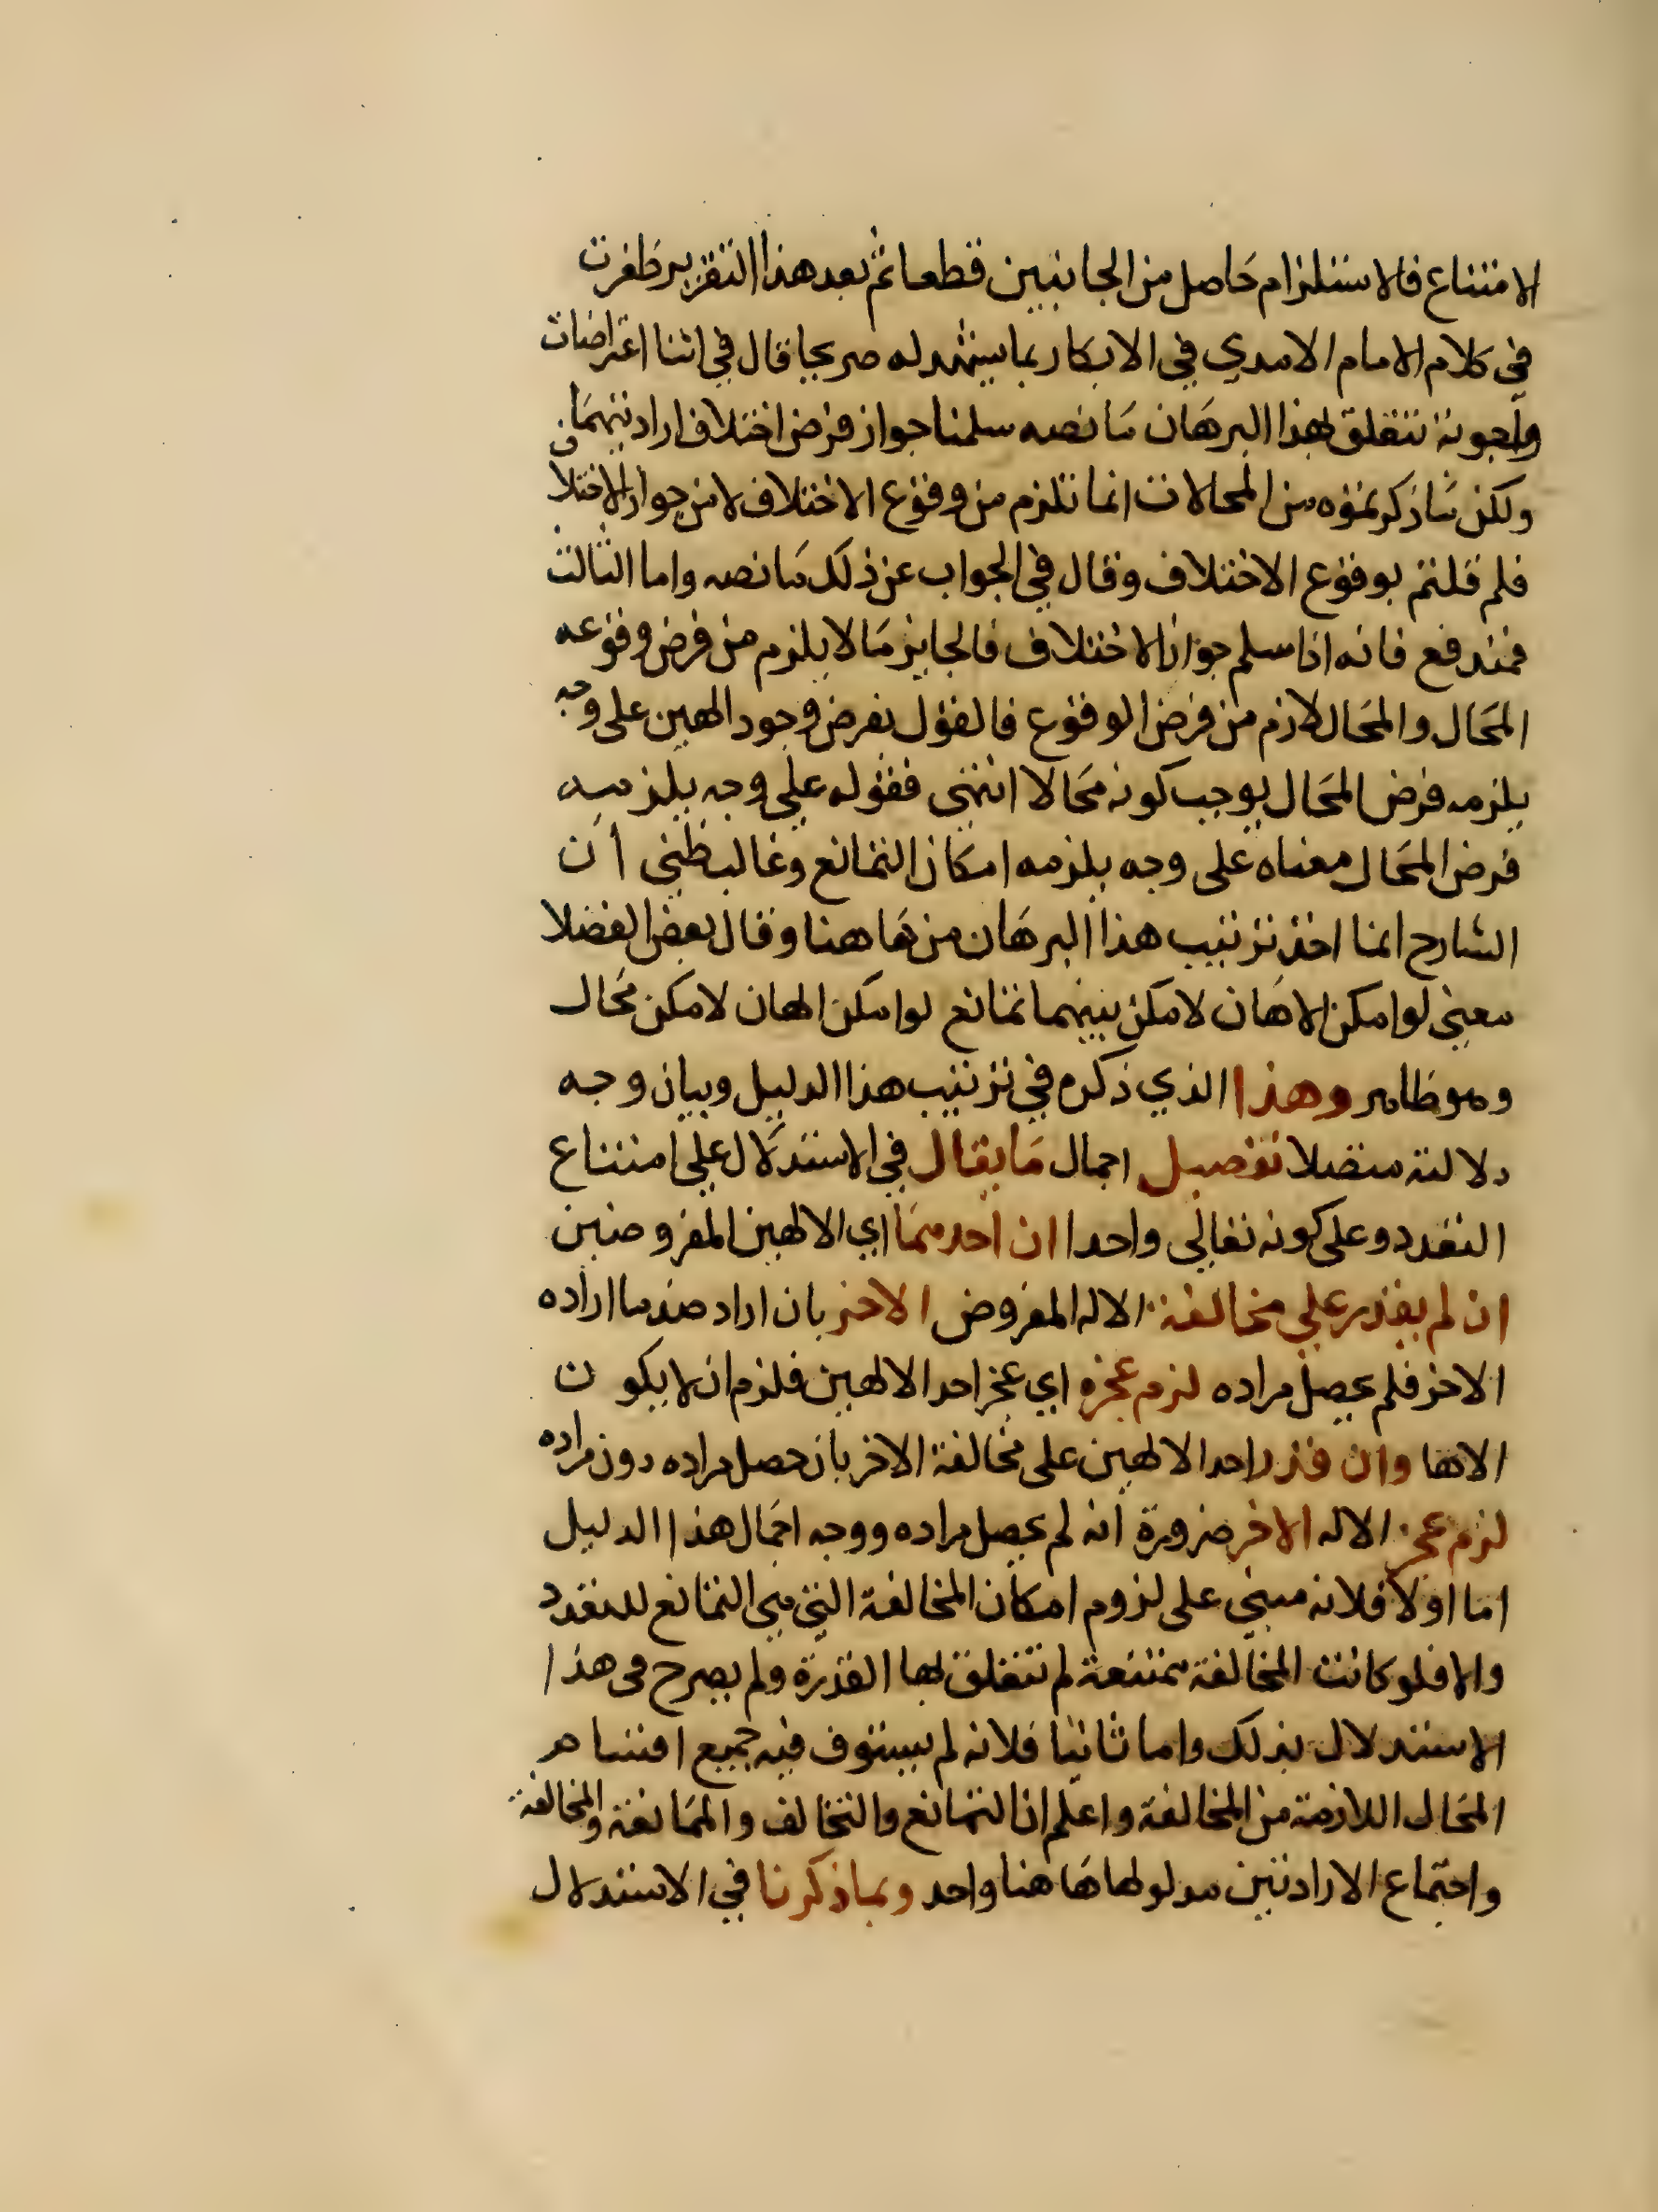 الامتناع فالاستلزام حاصل من الجانبين قطعا ثم بعد هذا التقرير ظفرت
في كلام الامام الامدي في الابكار بما يشهد له صريحا قال في اثنا اعتراضات
واجوبة تتعلق بهذا البرهان ما نصه سلمنا جواز فرض اختلاف ارادتيهما
ولكن ما ذكرتموه من المحالات انما تلزم من وقوع الاختلاف لا من جواز الاختلاف
فلم قلتم بوقوع الاختلاف وقال في الجواب عن ذلك ما نصه واما الثالث
فمندفع فانه اذا سلم جواز الاختلاف فالجايز ما لا يلزم من فرض وقوعه
المحال والمحال لازم من فرض الوقوع فالقول بفرض وجود الهين على وجه
يلزمه فرض المحال يوجب كونه محالا انتهى فقوله على وجه يلزمه
فرض المحال معناه على وجه يلزمه امكان التمانع وغالب ظني ان
الشارح انما اخذ ترتيب هذا البرهان من ها هنا وقال بعض الفضلا
معنى لو امكن الاهان لامكن بينهما تمانع لو امكن الهان لامكن محال
وهو ظاهر وهذا الذي ذكره في ترتيب هذا الدليل وبيان وجه
دلالته مفصلا تفصيل اجمال ما يقال في الاستدلال على امتناع
التعدد وعلى كونه تعالى واحدا ان احدهما اي الالهين المفروضين
ان لم يقدر على مخالفة الاله المفروض الاخر بان اراد ضد ما اراده
الاخر فلم يحصل مراده لزم عجزه اي عجز احد الالهين فلزم ان لا يكون
الاها وان قدر احد الالهين على مخالفة الاخر بان حصل مراده دون مراده
لزم عجز الاله الاخر ضرورة انه لم يحصل مراده ووجه اجمال هذا الدليل
اما اولا فلانه مبني على لزوم امكان المخالفة التي هي التمانع للتعدد
والا فلو كانت المخالفة ممتنعة لم تتعلق بها القدرة ولم يصرح في هذا
الاستدلال بذلك واما ثانيا فلانه لم يستوف فيه جميع اقسام
المحال اللازمة من المخالفة واعلم ان التمانع والتخالف والممانعة والمخالفة
واجتماع الارادتين مدلولها ها هنا واحد وبما ذكرنا في الاستدلال